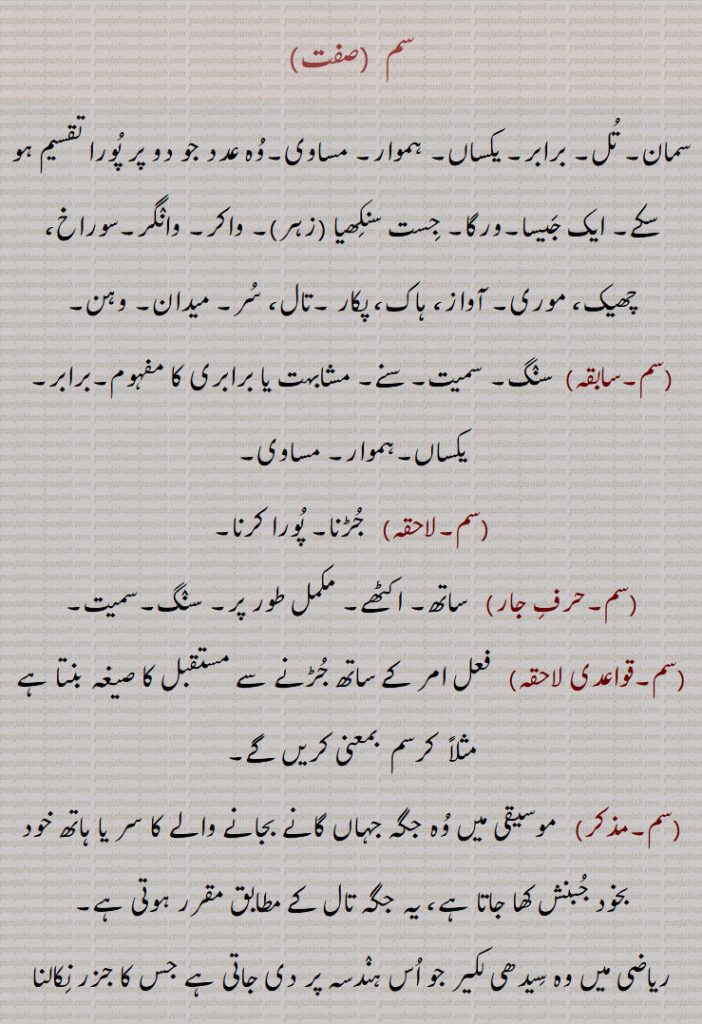 سم (صفت)
سمان۔ تُل۔ برابر۔ یکساں۔ ہموار۔ مساوی۔ وُہ عدد جو دو پر پُورا تقسیم ہو
سکے۔ ایک جَیسا۔ ورگا۔ جِست سنکِھیا (زہر)۔ واکر۔ وانگر۔ سوراخ،
چھیک، موری۔ آواز، ہاک، پکار۔ تال، سُر۔ میدان۔ وہن۔
(سم۔سابقہ) سنگ۔ سمیت۔ سنے۔ مشابہت یا برابری کا مفہوم۔ برابر۔
یکساں۔ ہموار۔ مساوی۔
(سم۔لاحقہ) جُڑنا۔ پُورا کرنا۔
(سم۔حرفِ جار) ساتھ۔ اکٹھے۔ مکمل طور پر۔ سنگ۔ سمیت۔
(سم۔قواعدی لاحقہ) فعل امر کے ساتھ جُڑنے سے مستقبل کا صیغہ بنتا ہے
مثلاً کرسم بمعنی کریں گے۔
(سم۔مذکر) موسیقی میں وُہ جگہ جہاں گانے بجانے والے کا سر یا ہاتھ خود
بخود جُنبش کھا جاتا ہے، یہ جگہ تال کے مطابق مقرر ہوتی ہے۔
ریاضی میں وہ سِیدھی لکیر جو اُس ہندسہ پر دی جاتی ہے جس کا جزر نِکالنا